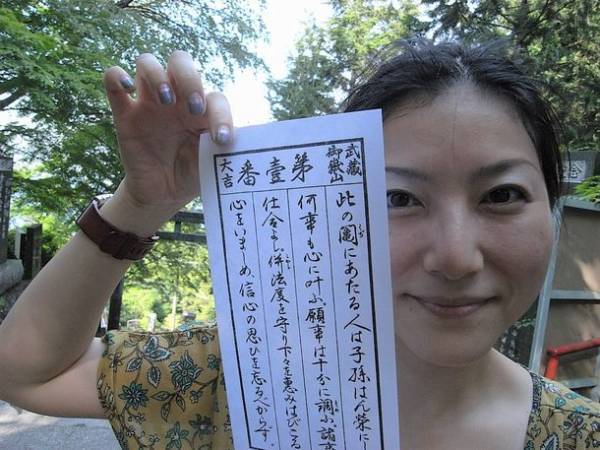 武蔵
御嶽山
第壹番
大吉
此の鬮にあたる人は子孫はん榮にし
何事も心に叶ふ願事は十分に調ふ諸
仕合よし併法度を守り下々を惠みはびこる
心をいましめ、信心の思ひを忘るべからず。